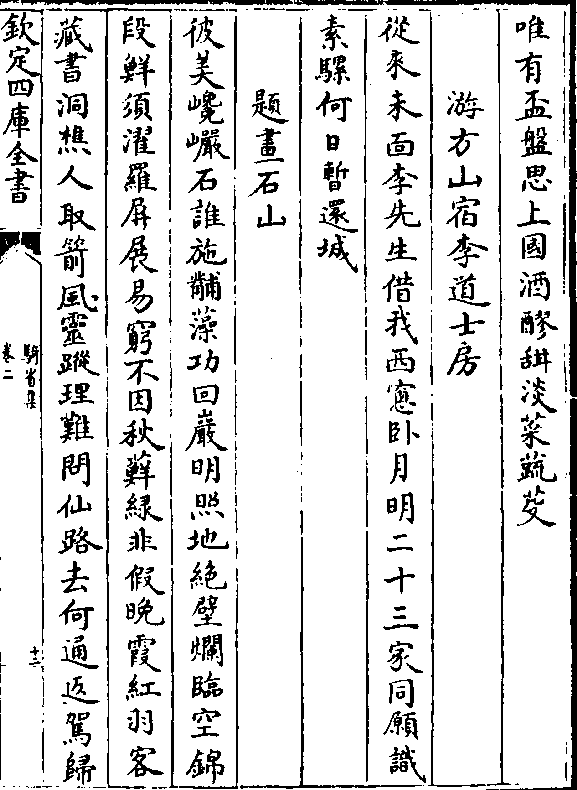 唯有盃盤思上國酒醪甜淡菜蔬芟
游方山宿李道士房
從來未面李先生借我西窻卧月明二十三家同願識
素騾何日暫還城
題畫石山
彼美巉巖石誰施黼藻功回巖明照地絶壁爛臨空錦
段鮮須濯羅屏展易窮不因秋蘚緑非假晚霞紅羽客
藏書洞樵人取箭風靈蹤理難問仙路去何通返駕歸
欽定四庫全書
騎省集
卷二
十二